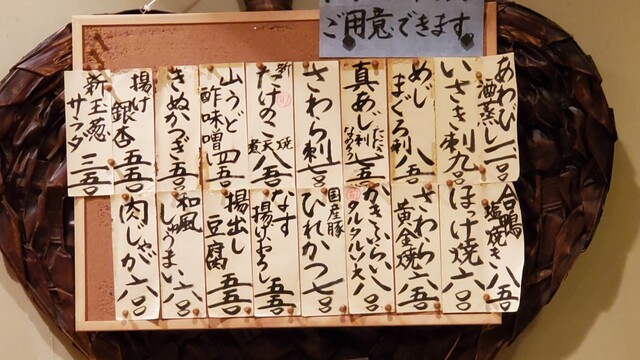 ご用意できます。
あわび
酒蒸し 二一〇〇
いさき刺 九〇〇
めじ
まぐろ刺 八五〇
真あじ 刺 たたき なめろう 七五〇
さわら刺 七〇〇
新
たけのこ 焼 天 煮 八五〇
山うど
酢味噌 四五〇
きぬかつぎ 五五〇
揚げ
銀杏 五五〇
新玉葱
サラダ 三五〇
合鴨
塩焼き 八五〇
ほっけ焼 六〇〇
さわら
黄金焼 六五〇
かきふらい
タルタルソース 八〇〇
国産豚
ひれかつ 七〇〇
なす
揚げおろし 五五〇
揚出し
豆腐 五五〇
和風
しゅうまい 六〇〇
肉じゃが 六〇〇